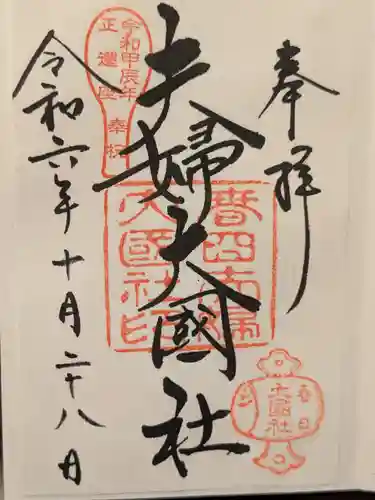 奉拝
夫婦大國社
令和六年十月二十八日
令和甲辰年
正遷座
奉祝
春日夫婦
大國社印
春日
大國社